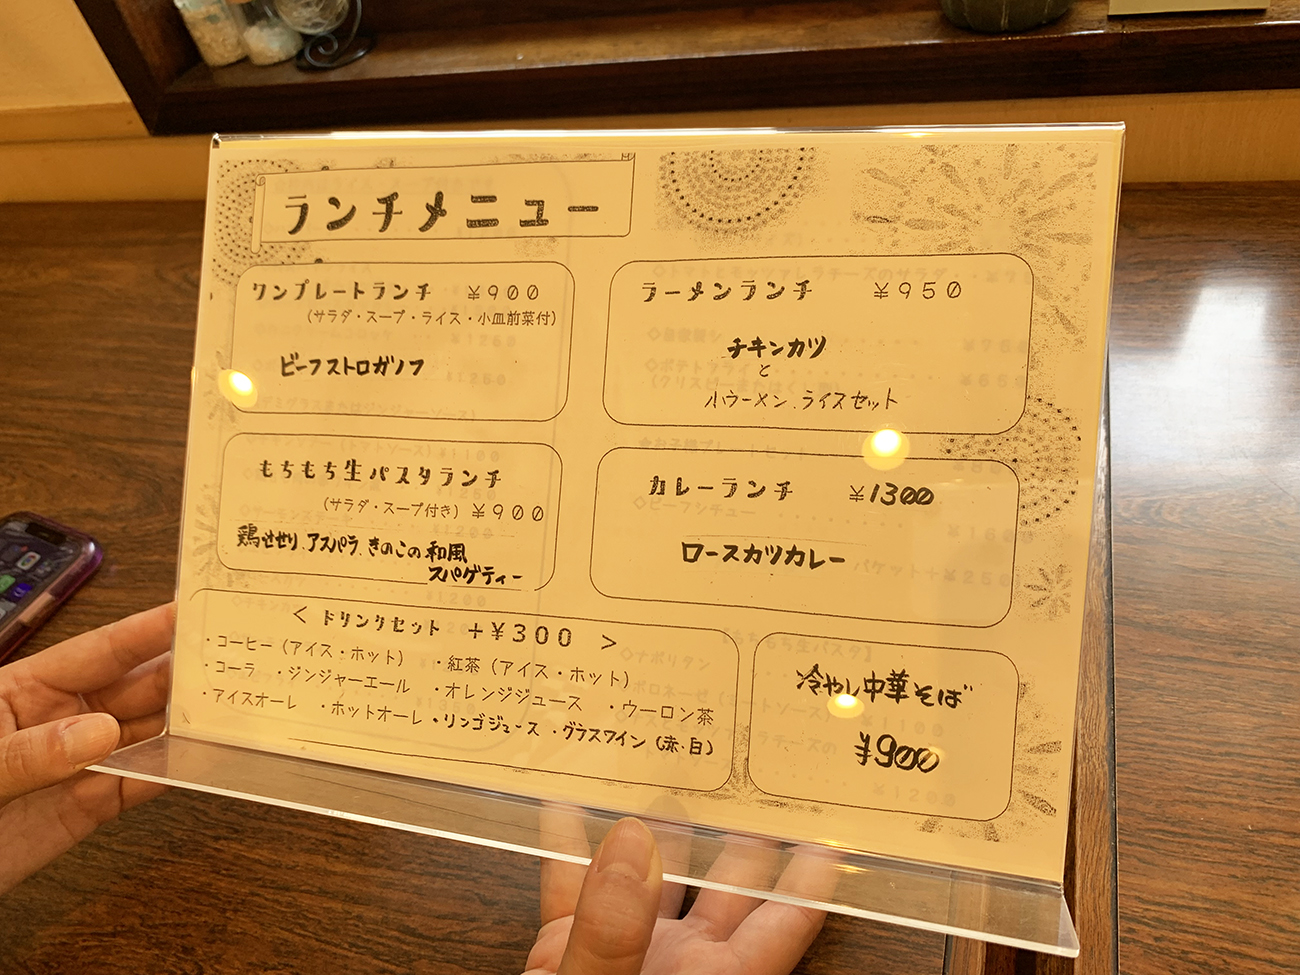 ランチメニュー
ワンプレートランチ ¥900
(サラダ・スープ・ライス・小皿前菜付)
ビーフストロガノフ
ラーメンランチ ¥950
チキンカツ
と
小ラーメン、ライスセット
もちもち生パスタランチ
(サラダ・スープ付き) ¥900
鶏せせり、アスパラ、きのこの和風
スパゲティー
カレーランチ ¥1300
ロースカツカレー
< ドリンクセット +¥300 >
・コーヒー (アイス・ホット) ・紅茶 (アイス・ホット)
・コーラ ・ジンジャーエール ・オレンジジュース ・ウーロン茶
・アイスオーレ ・ホットオーレ ・リンゴジュース ・グラスワイン (赤・白)
冷やし中華そば
¥900